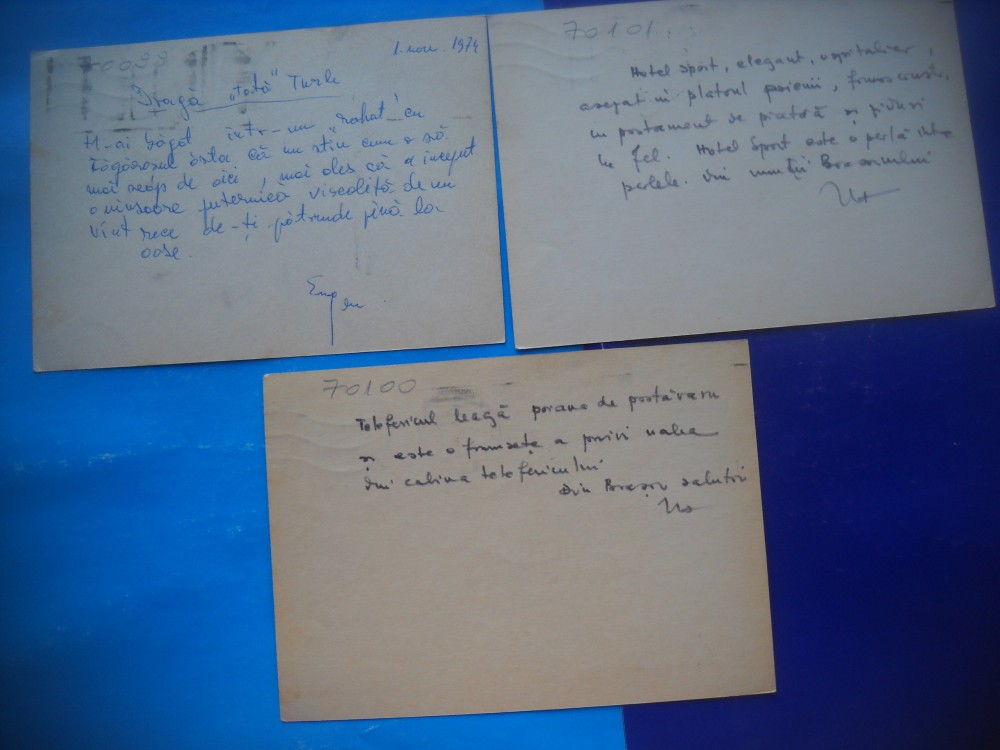 70099
1. nov. 1974
Dragă "Tată" Turle
M-ai băgat într-un "rahat" cu
Făgărașul ăsta, că nu știu cum o să
mai scap de aici, mai ales că a început
o ninsoare puternică viscolită de un
vînt rece de-ți pătrunde pînă la
oase.
Eugen
70101
Hotel Sport, elegant, ospitalier,
așezat în platoul poienii, frumos
cu postament de piatră și
în fel. Hotel Sport este o perlă între
perlele din munții Brașovului
70100
Teleferícul leagă poiana de postăvaru
și este o frumsețe a privi valea
din cabina telefericului
Din Brașov salutări